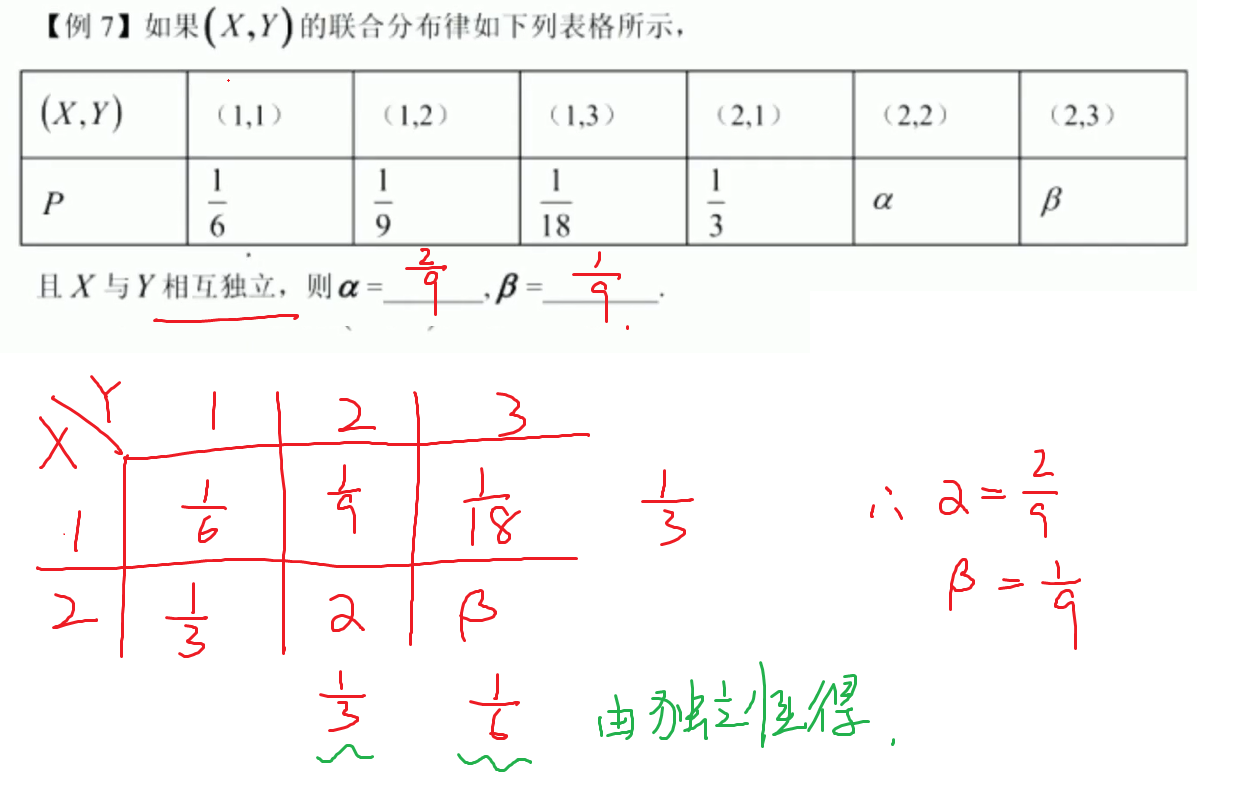 【例 7】如果(X,Y)的联合分布律如下列表格所示，
(X,Y) （1,1） （1,2） （1,3） （2,1） （2,2） （2,3）
P 1/6 1/9 1/18 1/3 α β
且 X 与 Y 相互独立，则 α = 2/9 , β = 1/9 .
X Y 1 2 3
1 1/6 1/9 1/18 1/3
2 1/3 α β
1/3 1/6 由独立性得.
∴ α = 2/9
β = 1/9